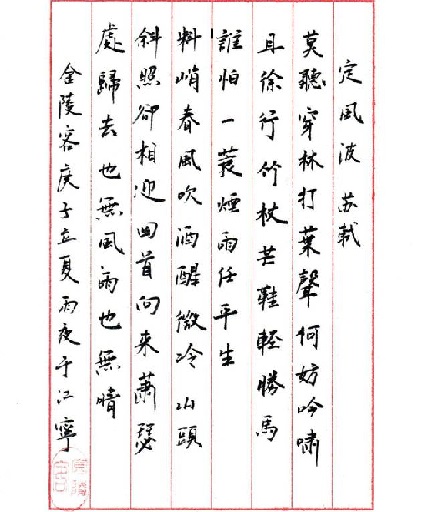 定風波 苏軾
莫聽穿林打葉聲何妨吟嘯
且徐行竹杖芒鞋輕勝馬
誰怕一蓑煙雨任平生
料峭春風吹酒醒微冷山頭
斜照卻相迎回首向來蕭瑟
處歸去也無風雨也無晴
金陵客庚子立夏雨夜于江寧